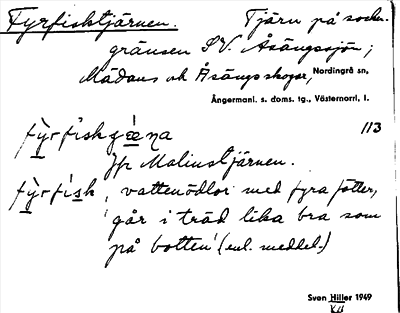 Fyrfisktjärnen. Tjärn på socken-
gränsen SV. Åsängssjön;
Mädans ok Åsängs skogar, Nordingrå sn,
Ångermanl. s. doms. tg., Västernorrl. l.
113
Jfr Malinstjärnen.
fy̱rfi̱sk, 'vattenödlor med fyra fötter,
går i träd lika bra som
på botten' (enl. meddel.)
Sven Hiller 1949